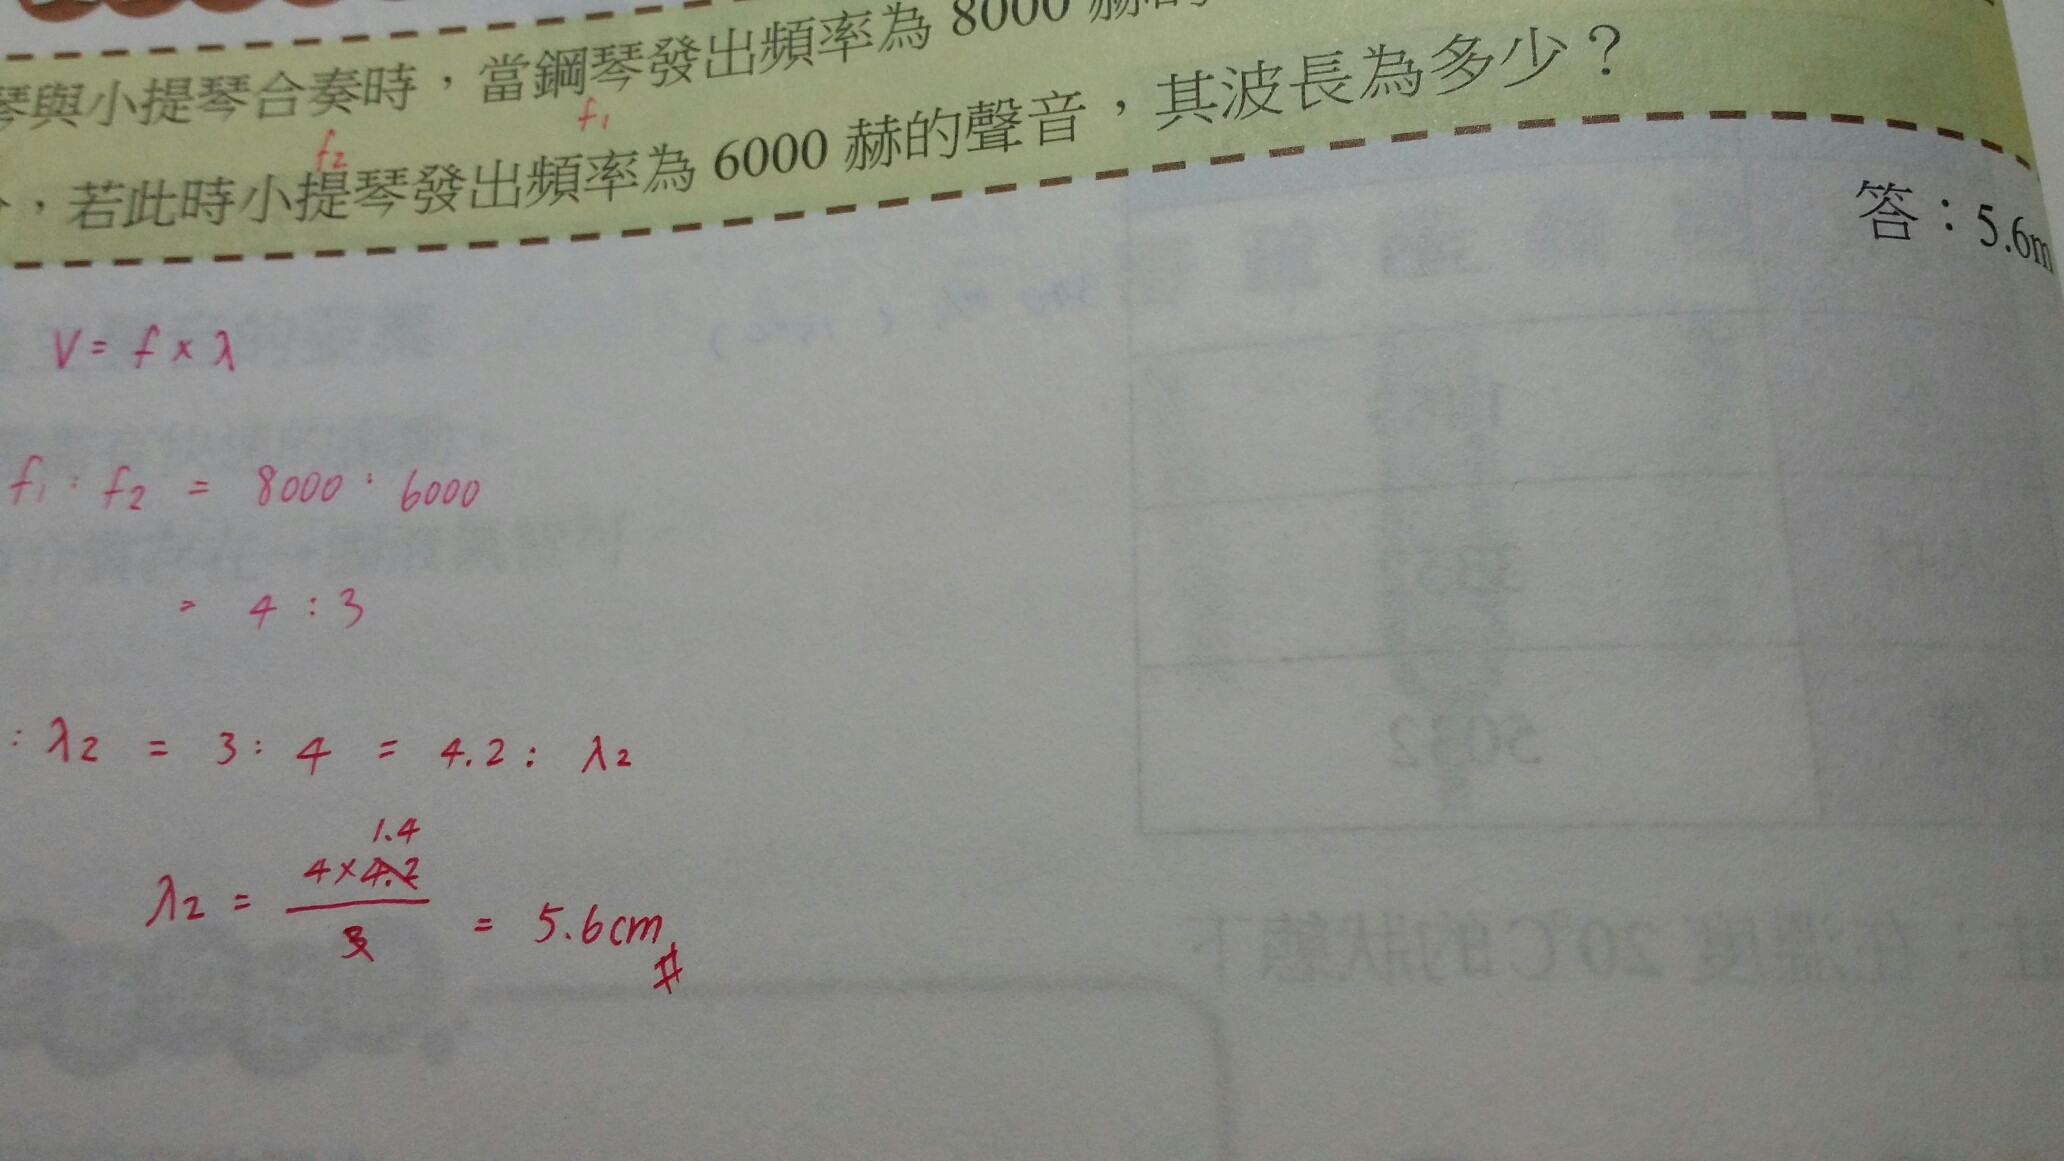 琴與小提琴合奏時，當鋼琴發出頻率為 8000 赫的
f₁
f₂
，若此時小提琴發出頻率為 6000 赫的聲音，其波長為多少？
答：5.6m
V = f × λ
f₁ : f₂ = 8000 : 6000
= 4 : 3
: λ₂ = 3 : 4 = 4.2 : λ₂
1.4
λ₂ = 4×4.2 / 3 = 5.6cm #